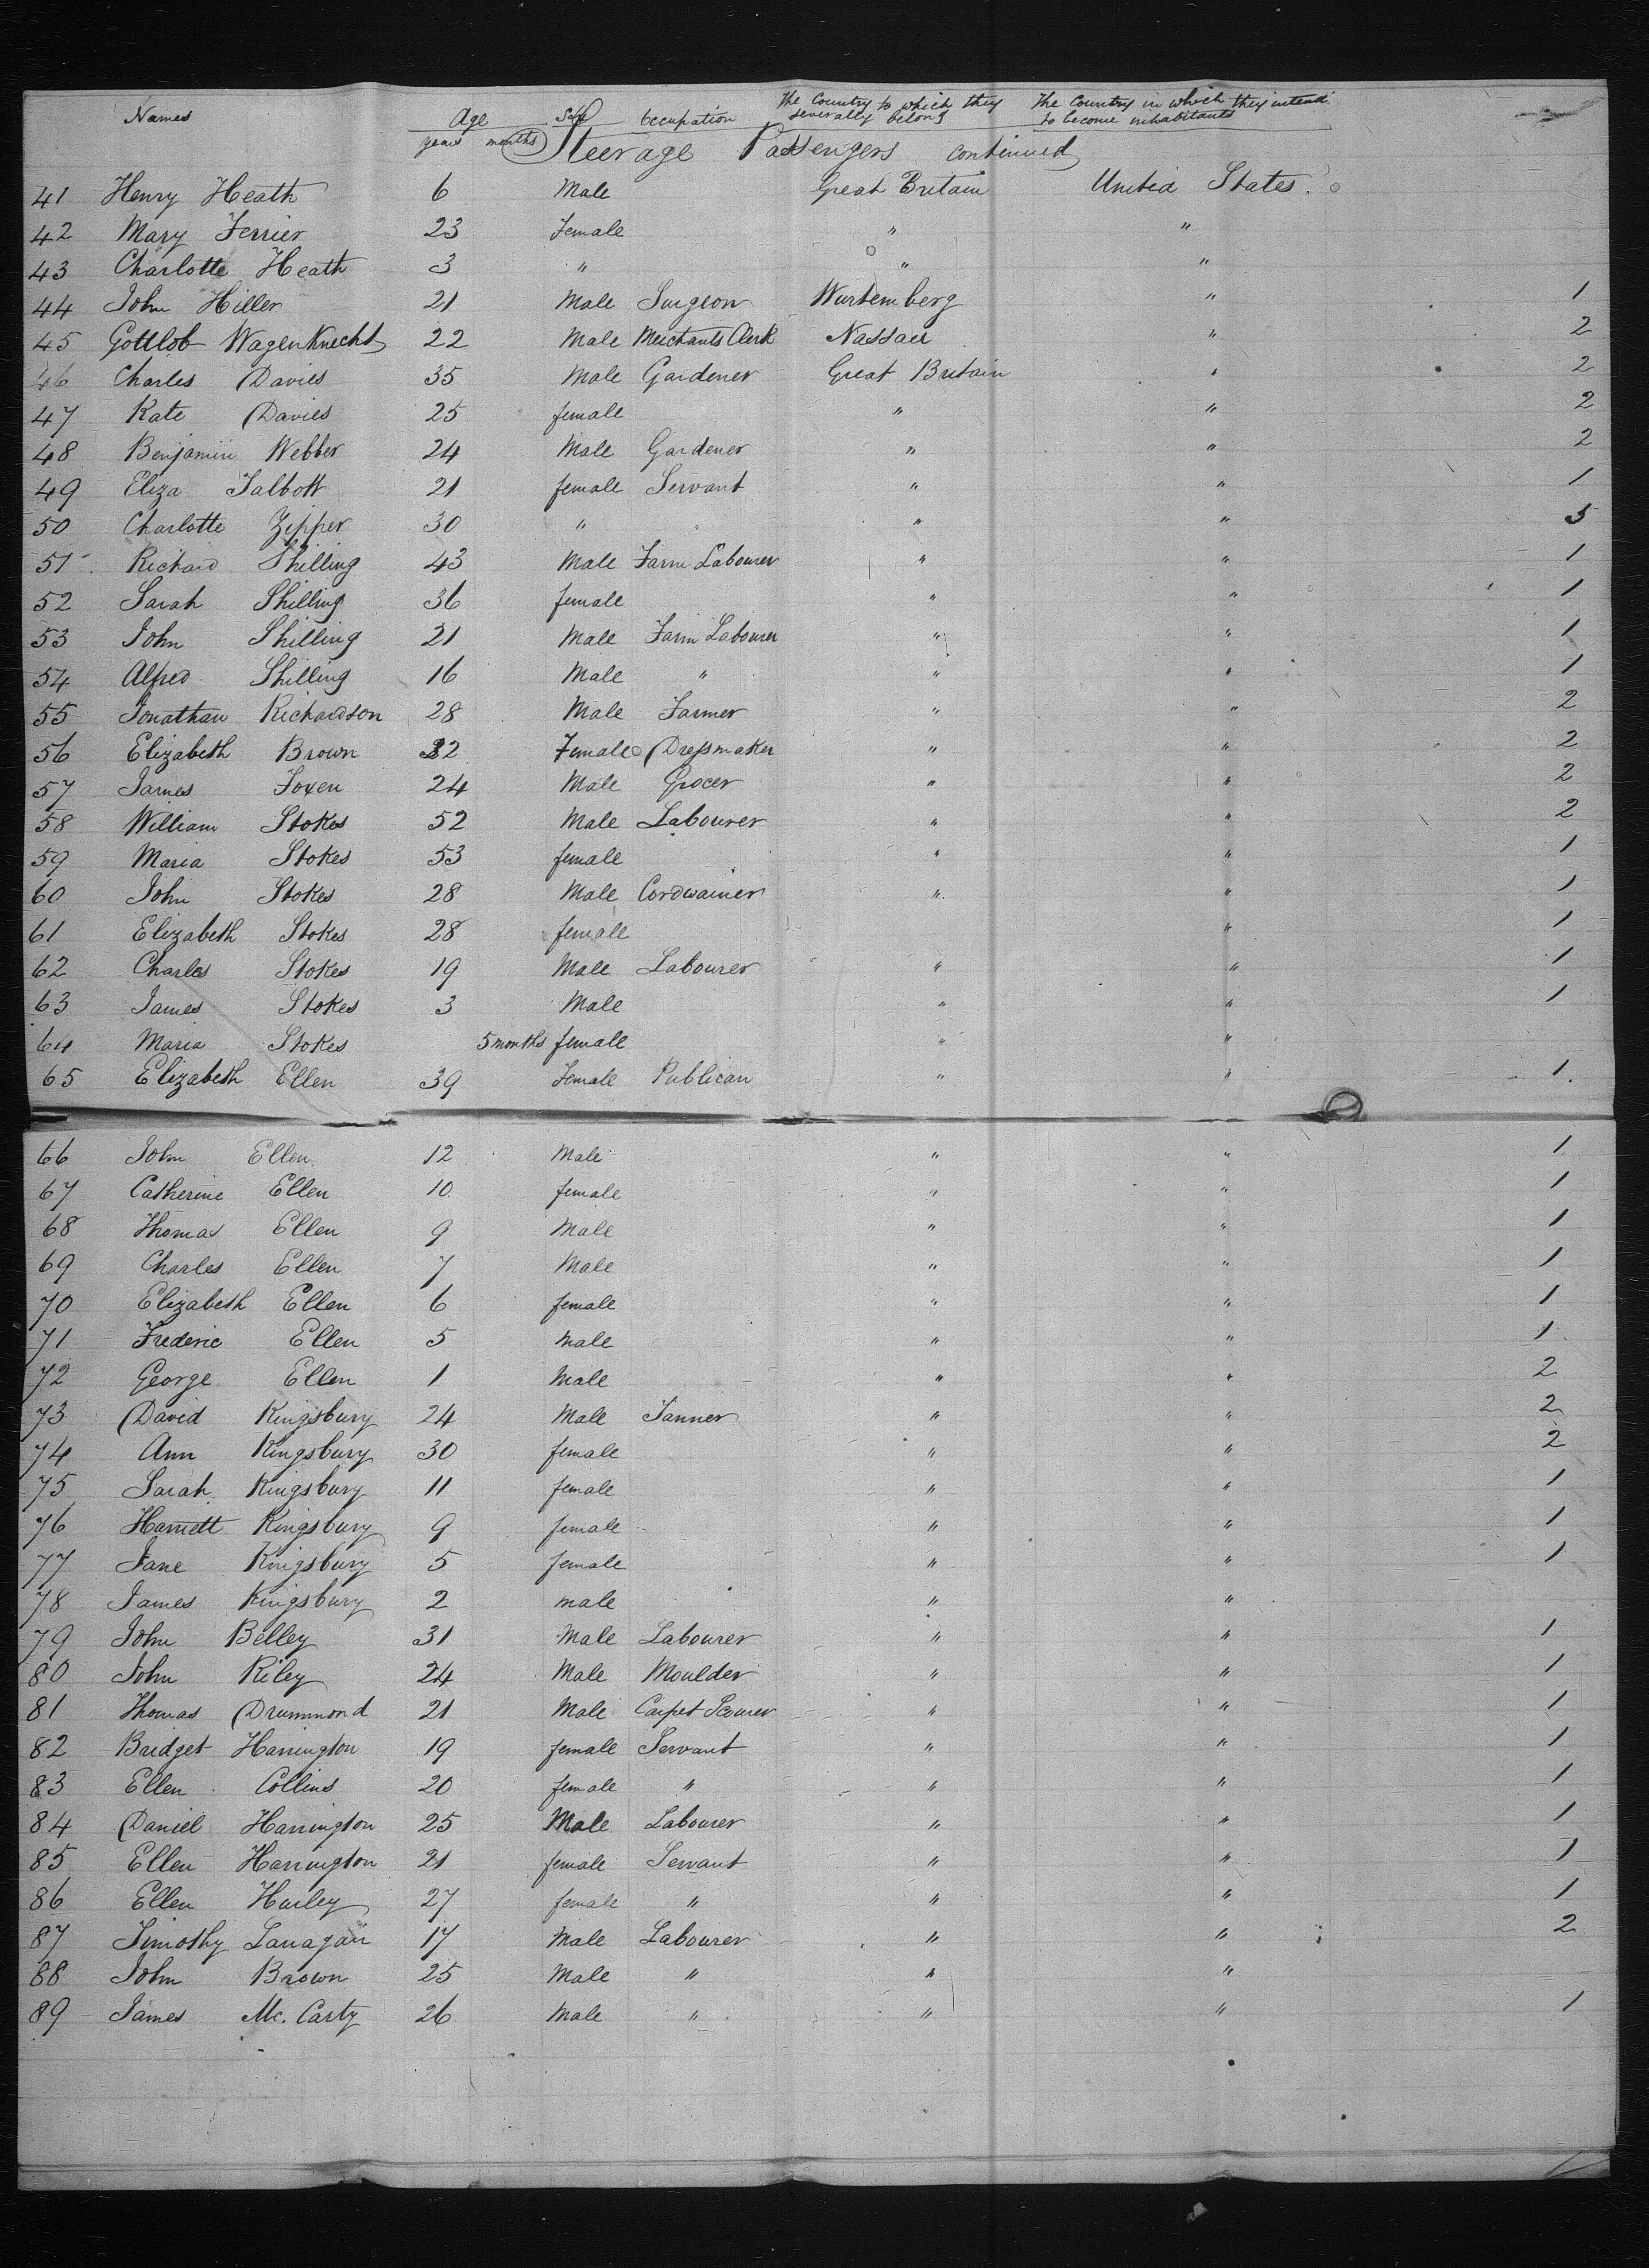 Names Age Sex Occupation The Country to which they The Country in which they intend
years months severally belong to become inhabitants
Steerage Passengers continued
41 Henry Heath 6 Male Great Britain United States.
42 Mary Ferrier 23 Female " "
43 Charlotte Heath 3 " " "
44 John Hiller 21 Male Surgeon Wurtemberg " 1
45 Gottlob Wagenknecht 22 Male Merchants Clerk Nassau " 2
46 Charles Davies 35 Male Gardener Great Britain " 2
47 Kate Davies 25 female " " 2
48 Benjamin Webber 24 Male Gardener " " 2
49 Eliza Talbott 21 female Servant " " 1
50 Charlotte Zipper 30 " " " " 5
51 Richard Shilling 43 Male Farm Labourer " " 1
52 Sarah Shilling 36 female " " 1
53 John Shilling 21 Male Farm Labourer " " 1
54 Alfred Shilling 16 Male " " " 1
55 Jonathan Richardson 28 Male Farmer " " 2
56 Elizabeth Brown 22 Female Dressmaker " " 2
57 James Foxen 24 Male Grocer " " 2
58 William Stokes 52 Male Labourer " " 2
59 Maria Stokes 53 female " " 1
60 John Stokes 28 Male Cordwainer " " 1
61 Elizabeth Stokes 28 female " 1
62 Charles Stokes 19 Male Labourer " " 1
63 James Stokes 3 Male " " 1
64 Maria Stokes 5 months female " "
65 Elizabeth Ellen 39 Female Publican " " 1
66 John Ellen 12 Male " " 1
67 Catherine Ellen 10 female " " 1
68 Thomas Ellen 9 Male " " 1
69 Charles Ellen 7 Male " " 1
70 Elizabeth Ellen 6 female " " 1
71 Frederic Ellen 5 Male " " 1
72 George Ellen 1 Male " " 2
73 David Kingsbury 24 Male Tanner " " 2
74 Ann Kingsbury 30 female " " 2
75 Sarah Kingsbury 11 female " " 1
76 Harriett Kingsbury 9 female " " 1
77 Jane Kingsbury 5 female " " 1
78 James Kingsbury 2 male " "
79 John Belley 31 Male Labourer " " 1
80 John Riley 24 Male Moulder " " 1
81 Thomas Drummond 21 Male Carpet Scourer " " 1
82 Bridget Harrington 19 female Servant " " 1
83 Ellen Collins 20 female " " " 1
84 Daniel Harrington 25 Male Labourer " " 1
85 Ellen Harrington 21 female Servant " " 1
86 Ellen Hurley 27 female " " " 1
87 Timothy Lanagan 17 Male Labourer " " 2
88 John Brown 25 Male " " "
89 James Mc. Carty 26 Male " " " 1